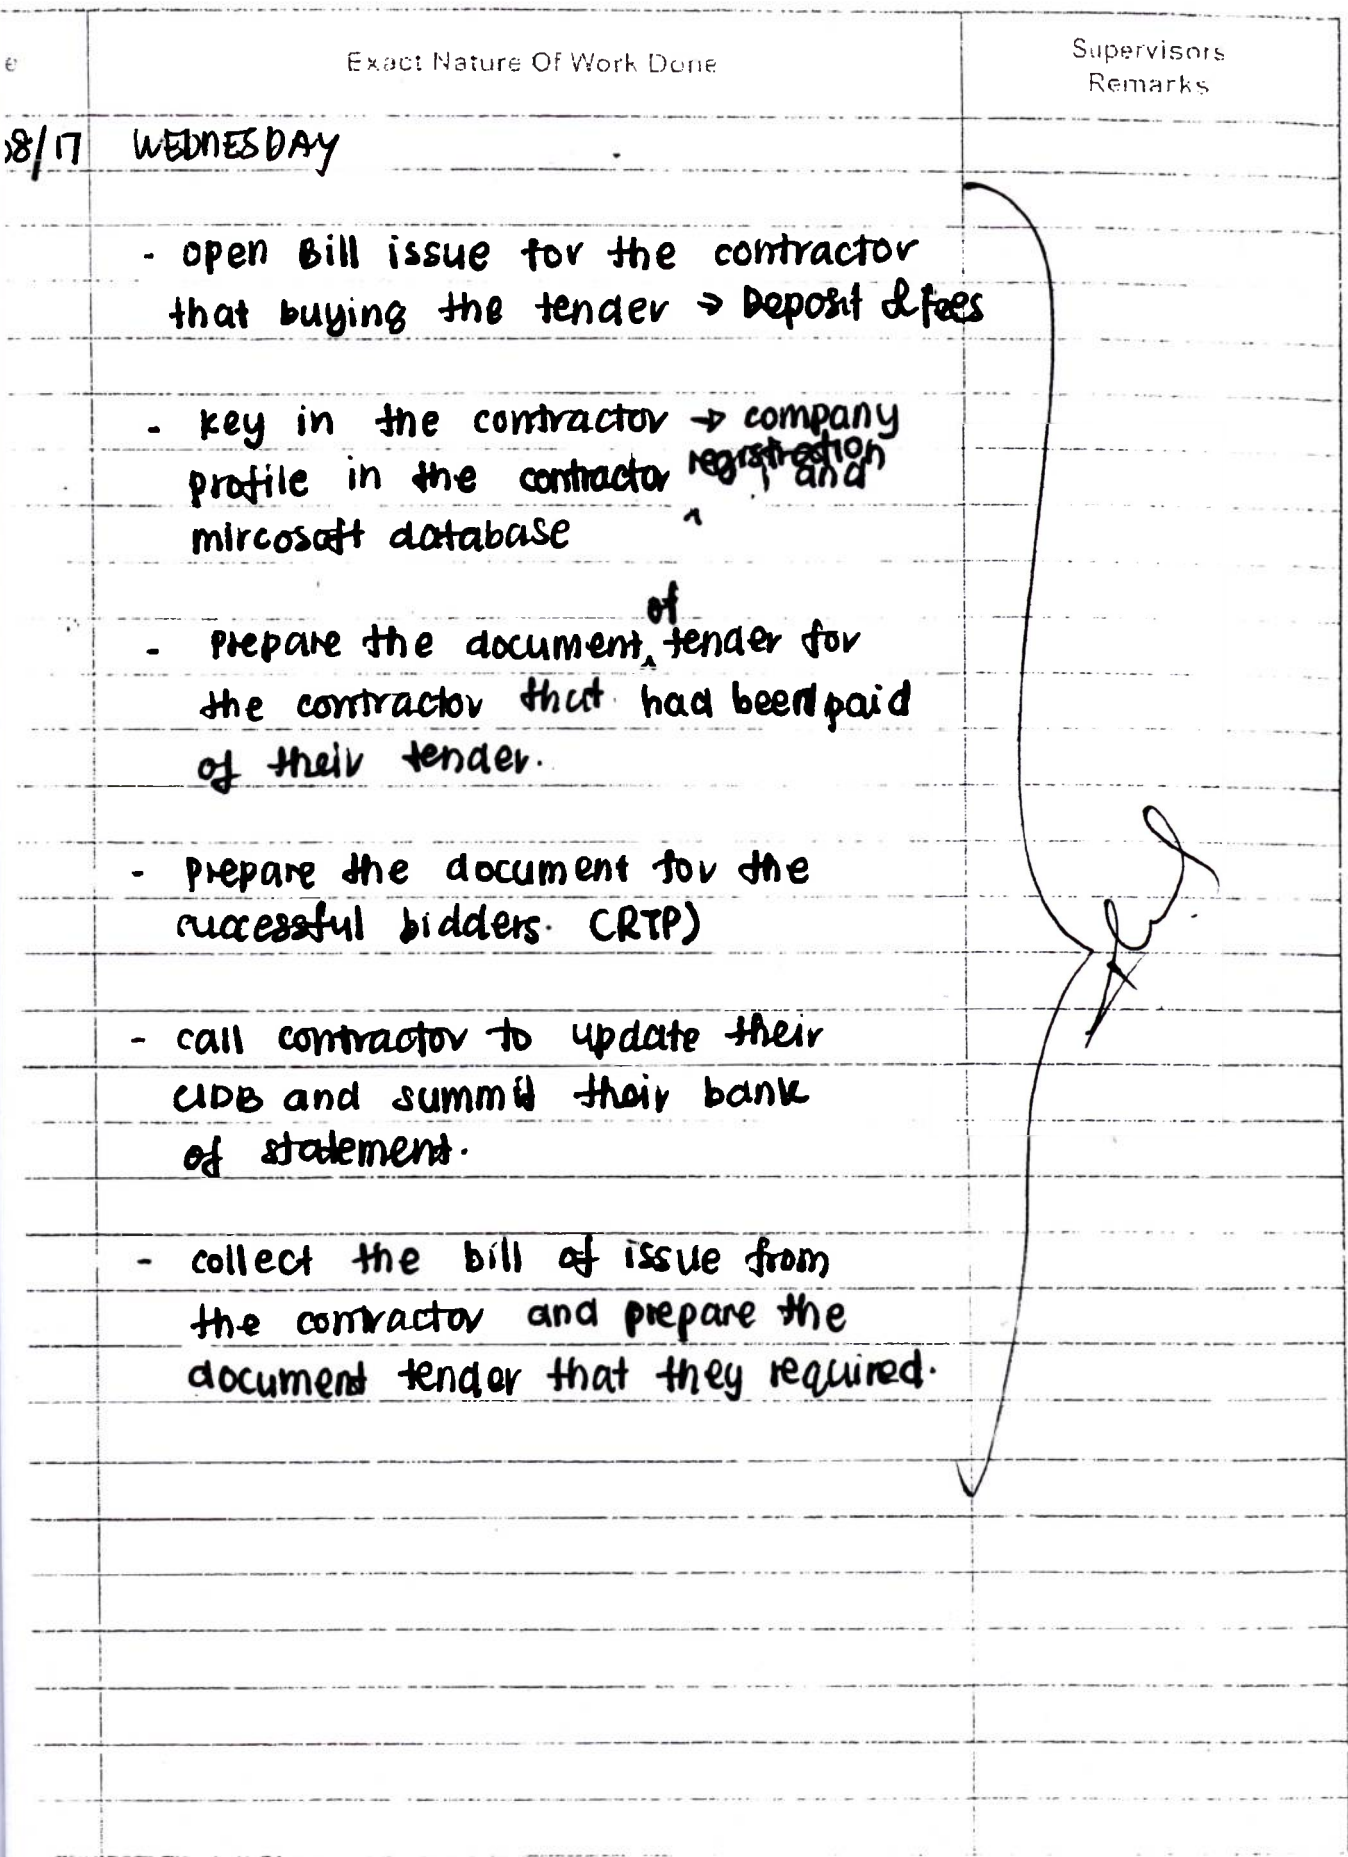 e
Exact Nature Of Work Done
Supervisors
Remarks
08/17 WEDNESDAY
- open Bill issue for the contractor
that buying the tender → Deposit & fees
- key in the contractor → company
registration
profile in the contractor ^ and
mircosoft database
of
- prepare the document ^ tender for
the contractor that had been paid
of their tender.
- prepare the document for the
successful bidders. (RTP)
- call contractor to update their
CIDB and summit their bank
of statement.
- collect the bill of issue from
the contractor and prepare the
document tender that they required.